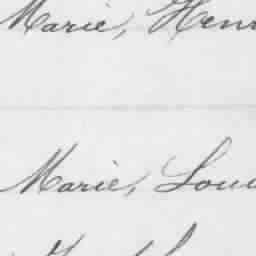 Marie, Henr
Marie, Loui